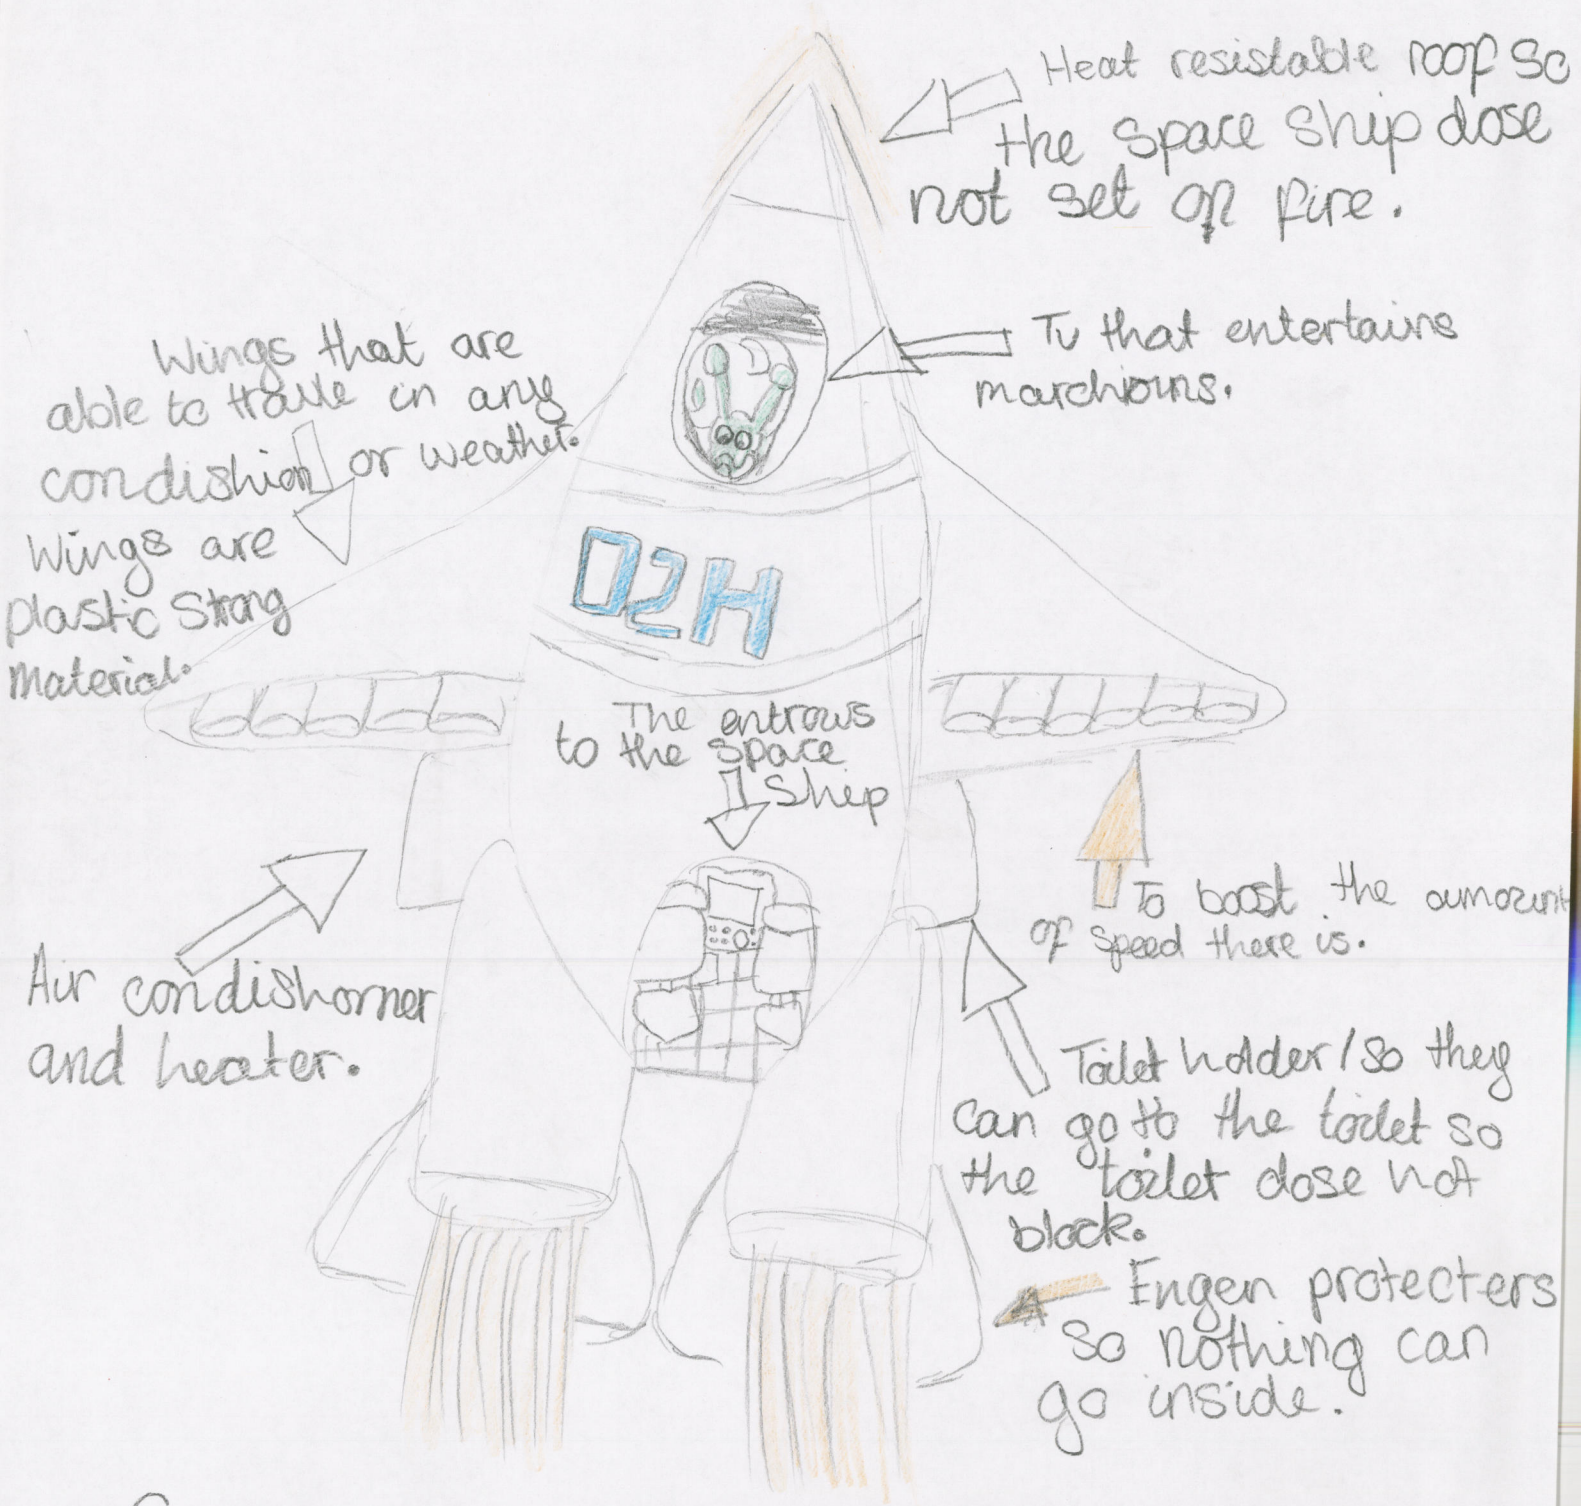 Heat resistable roof so
the space ship dose
not set on fire.
Tv that entertains
marchions.
Wings that are
able to travle in any
condishion or weather.
Wings are
plastic strong
material.
02H
The entrows
to the space
ship
To boost the aumount
of speed there is.
Air condishorner
and heater.
Toilet holder/so they
can go to the toilet so
the toilet dose not
block.
Engen protecters
so nothing can
go inside.